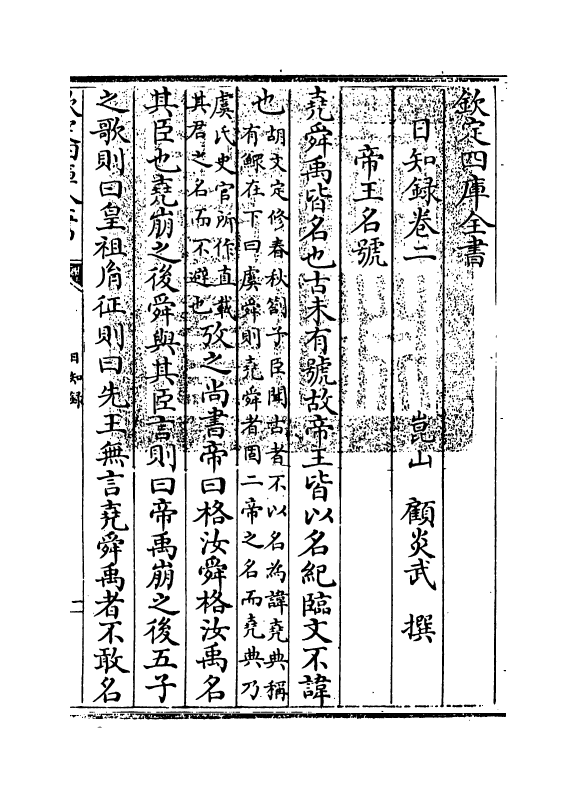 欽定四庫全書
日知録卷二
崑山 顧炎武 撰
帝王名號
堯舜禹皆名也古未有號故帝王皆以名紀臨文不諱
也胡文定修春秋劄子臣聞古者不以名為諱堯典稱
有鰥在下曰虞舜則堯舜者固二帝之名而堯典乃
虞氏史官所作直載
其君之名而不避也攷之尚書帝曰格汝舜格汝禹名
其臣也堯崩之後舜與其臣言則曰帝禹崩之後五子
之歌則曰皇祖𦙍征則曰先王無言堯舜禹者不敢名
日知録